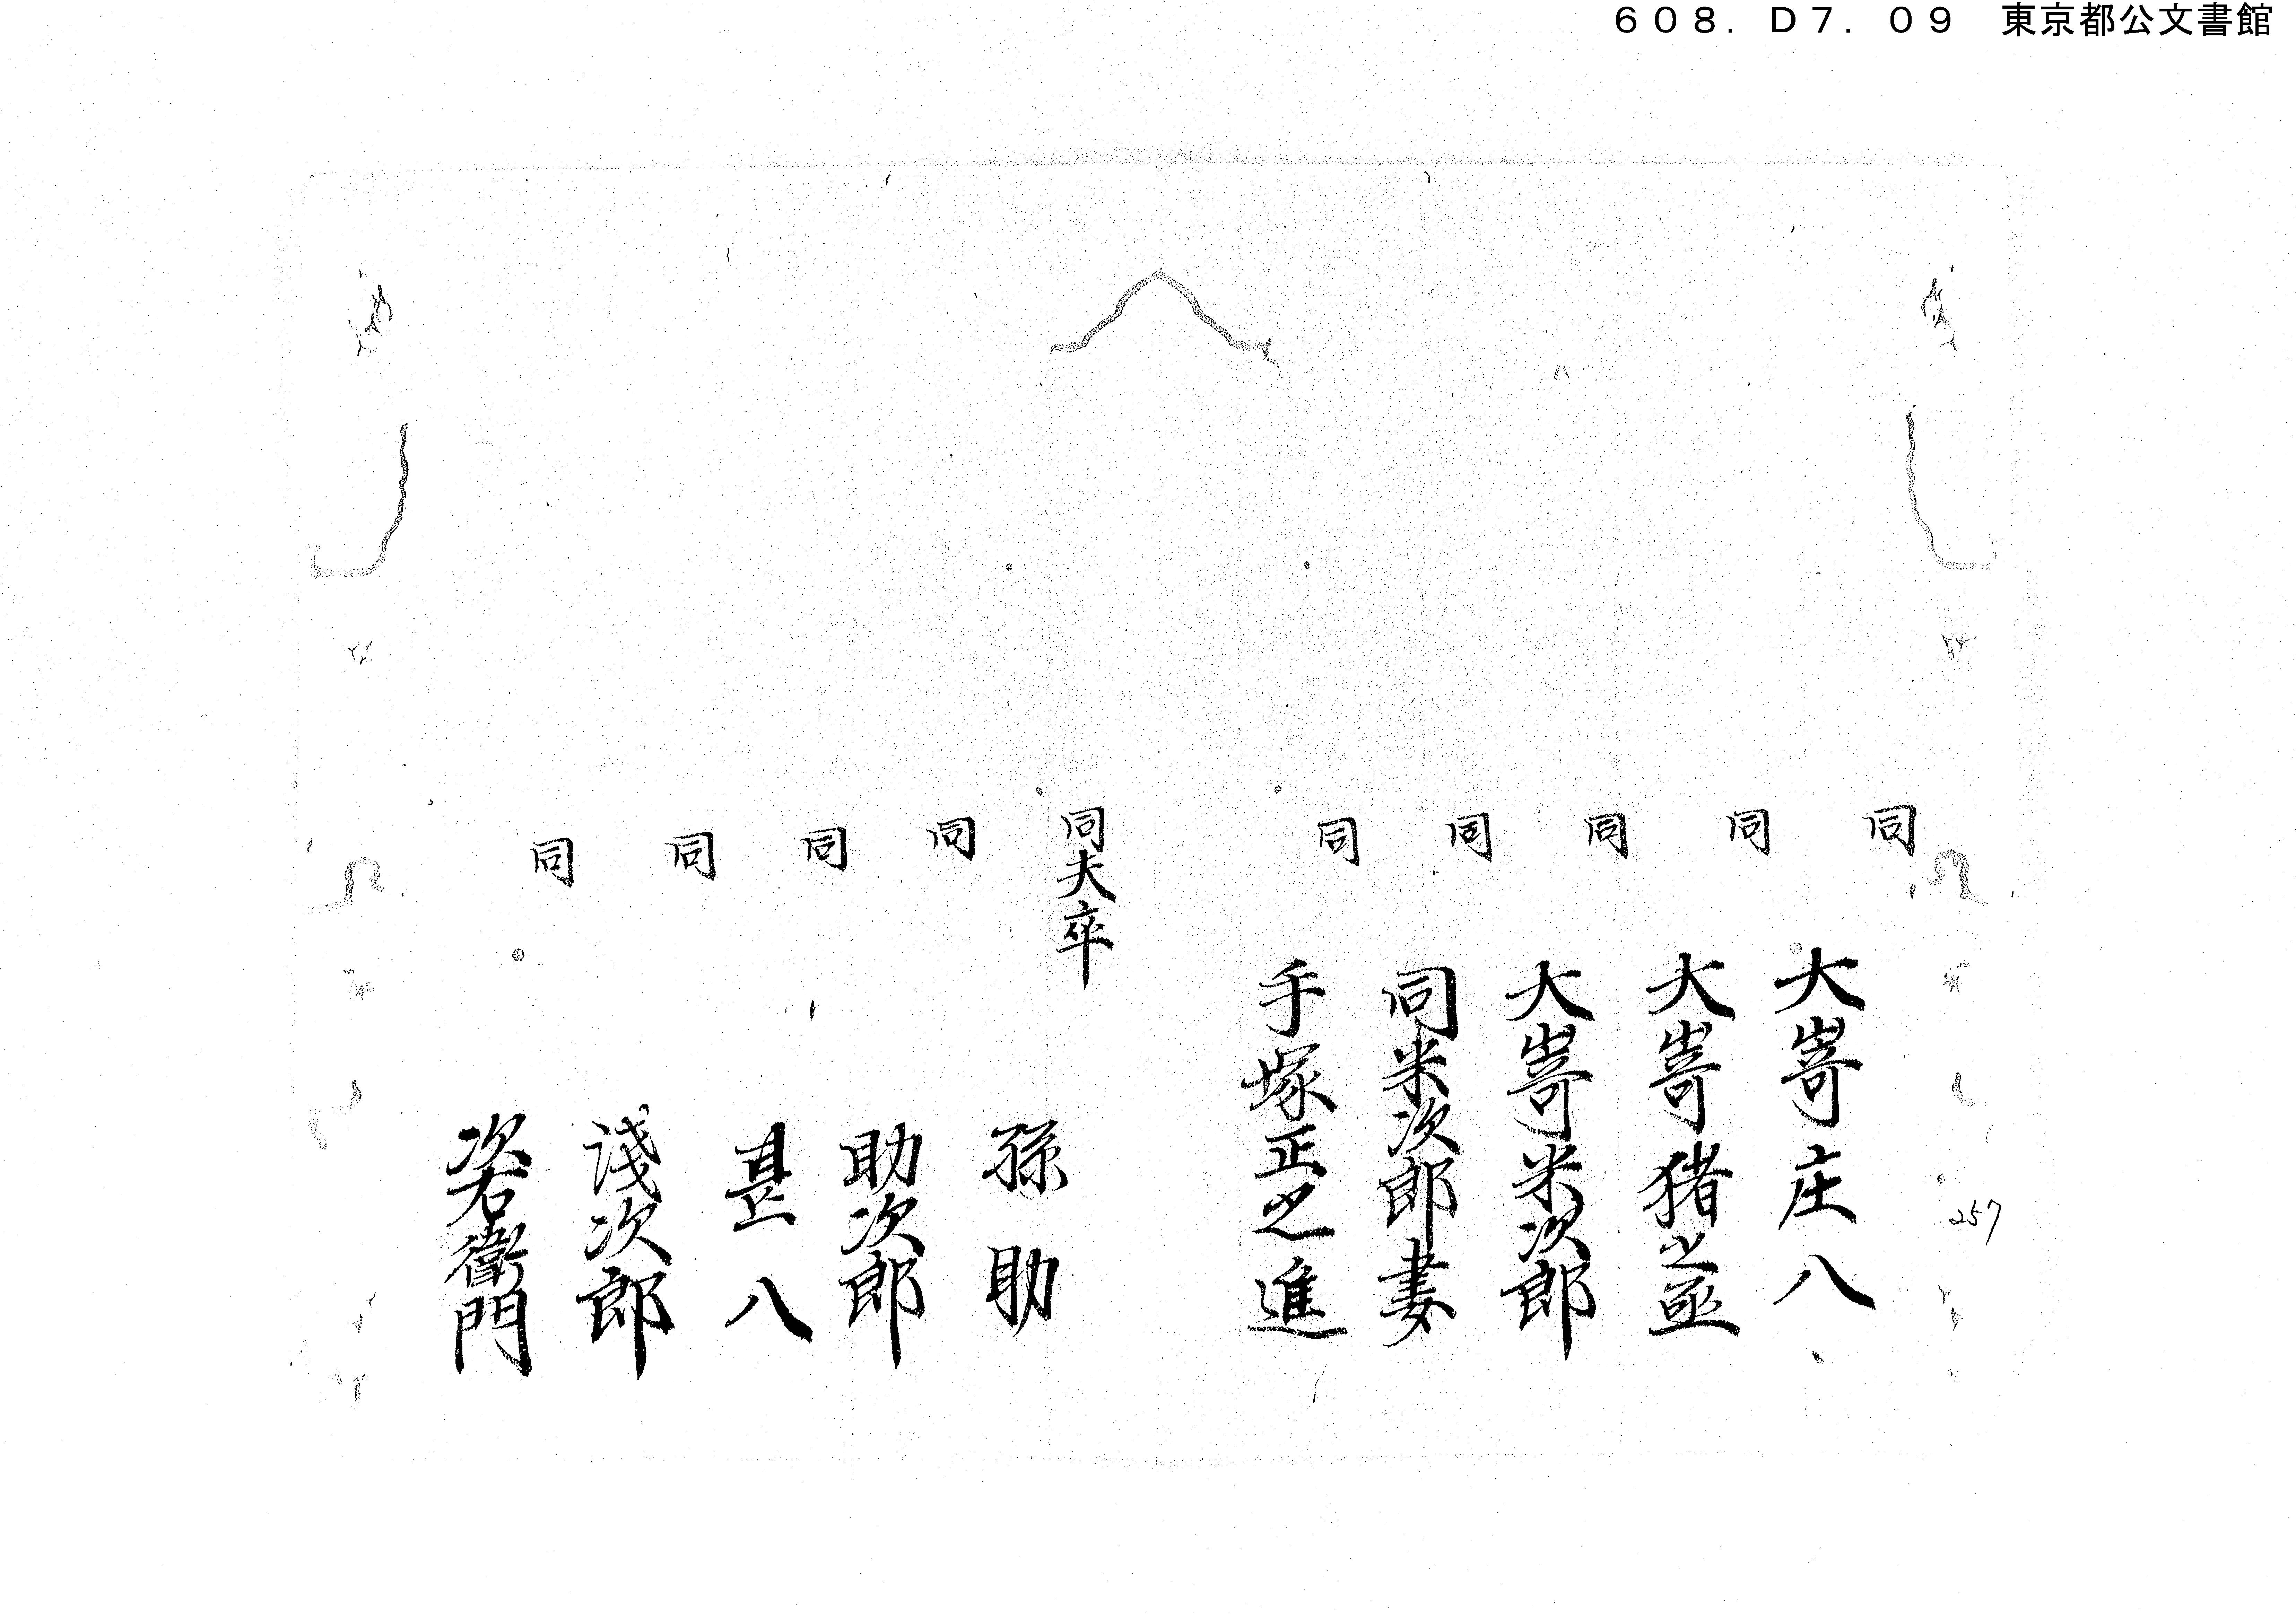 608. D7. 09 東京都公文書館
同 大嵜庄八
同 大嵜猪之亟
同 大嵜米次郎
同 同米次郎妻
同 手塚正之進
同夫卒 孫助
同 助次郎
同 甚八
同 次郎
同 次右衛門
257